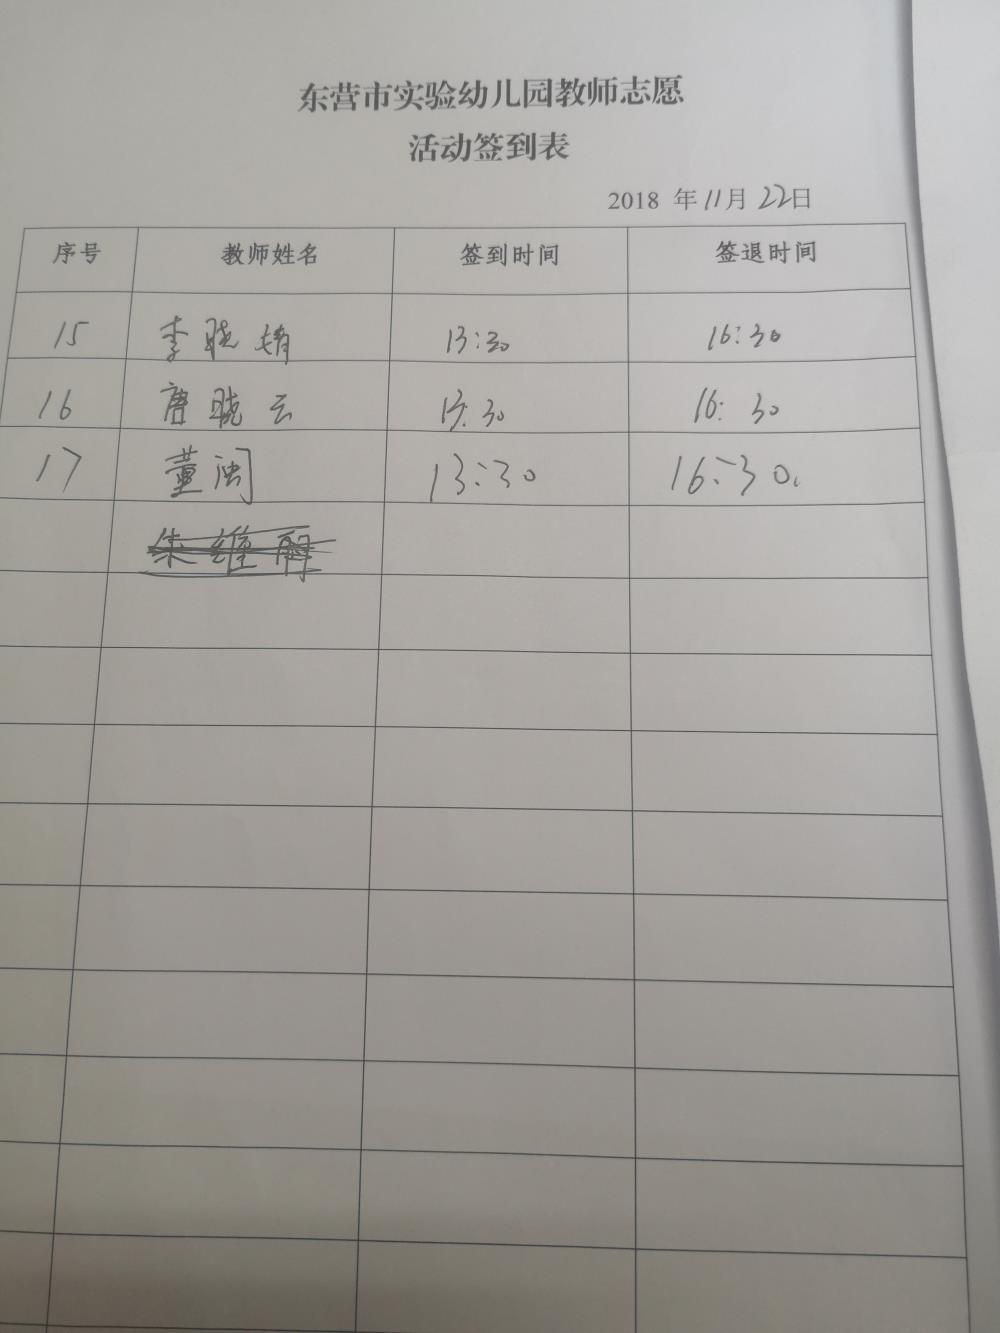 东营市实验幼儿园教师志愿
活动签到表
2018 年11月22日
序号 教师姓名 签到时间 签退时间
15 李晓婧 13:30 16:30
16 唐晓云 13:30 16:30
17 董闽 13:30 16:30.
朱维丽